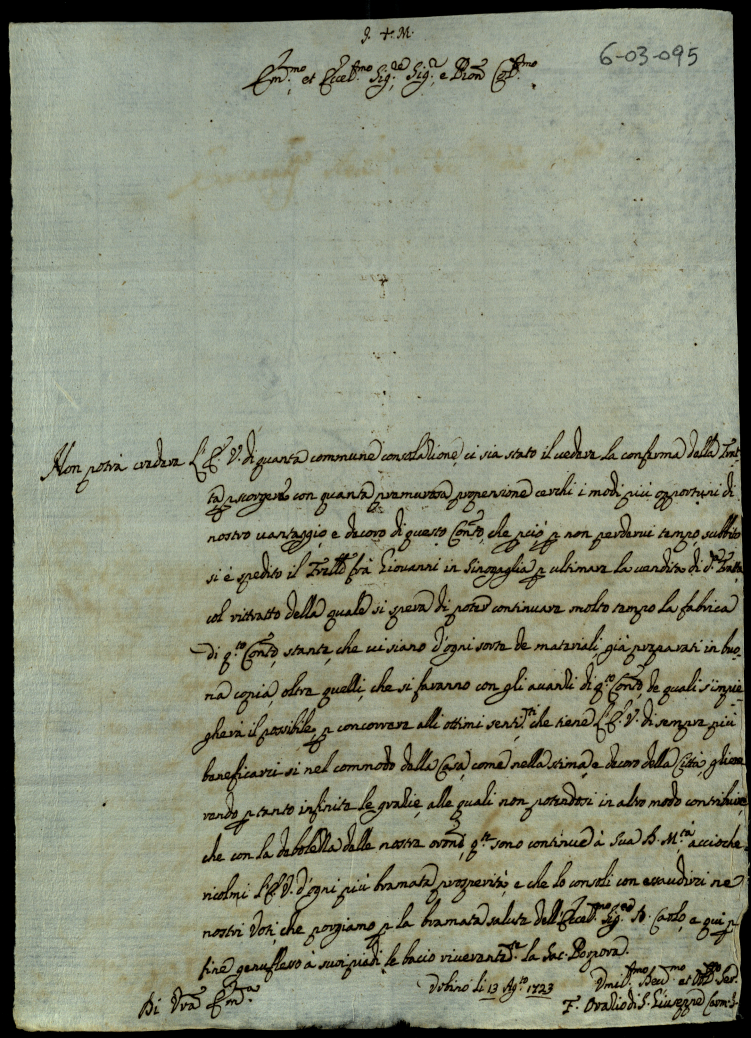 J. + M.
6-03-095
Em.mo et Ecce.mo Sig.re Sig.r e Pron Col.mo
Non potrà credere l'E. V. di quanta commune consolatione ci sia stato il vedere la conferma della Trat
ta p scorgere con quanta premurosa propensione cerchi i modi più opportuni di
nostro vantaggio e decoro di questo Conto, che p ciò p non perdervi tempo, subbito
si è spedito il Frello frà Giovanni in Sinogaglia p ultimare la vendita di d.a Tratta
col ritratto della quale si spera di poter continuare molto tempo la fabrica
di q.to Conto, stante, che vi siano d'ogni sorte de materiali già preparati in buo
na copia, oltre quelli, che si faranno con gli avanzi di q.to Conto, de quali s'impie
gherà il possibile, p concorrere alli ottimi senti.ti che tiene l'E. V. di sempre più
beneficarci si nel commodo della Casa, come nella stima, e decoro della Città, gliene
rendo p tanto infinite le gratie, alle quali non potendosi in altro modo contribuire,
che con la debolezza delle nostre oroni, q.te sono continue à Sua D. M.tà, accioche
ricolmi l'E. V. d'ogni più bramata prosperità, e che lo consoli con essaudirci ne
nostri Voti, che porgiamo p la bramata salute dell'Ecce.mo Sig.re D. Carlo, e qui p
fine genuflesso à suoi piedi, le bacio riverente.te la Sac. Porpora.
Di Vra Em.za
Urbino li 13 Ag.to 1723
Umil.mo Dev.mo et Obb.mo Ser.
F. Oratio di S. Giuseppe Carm. S.